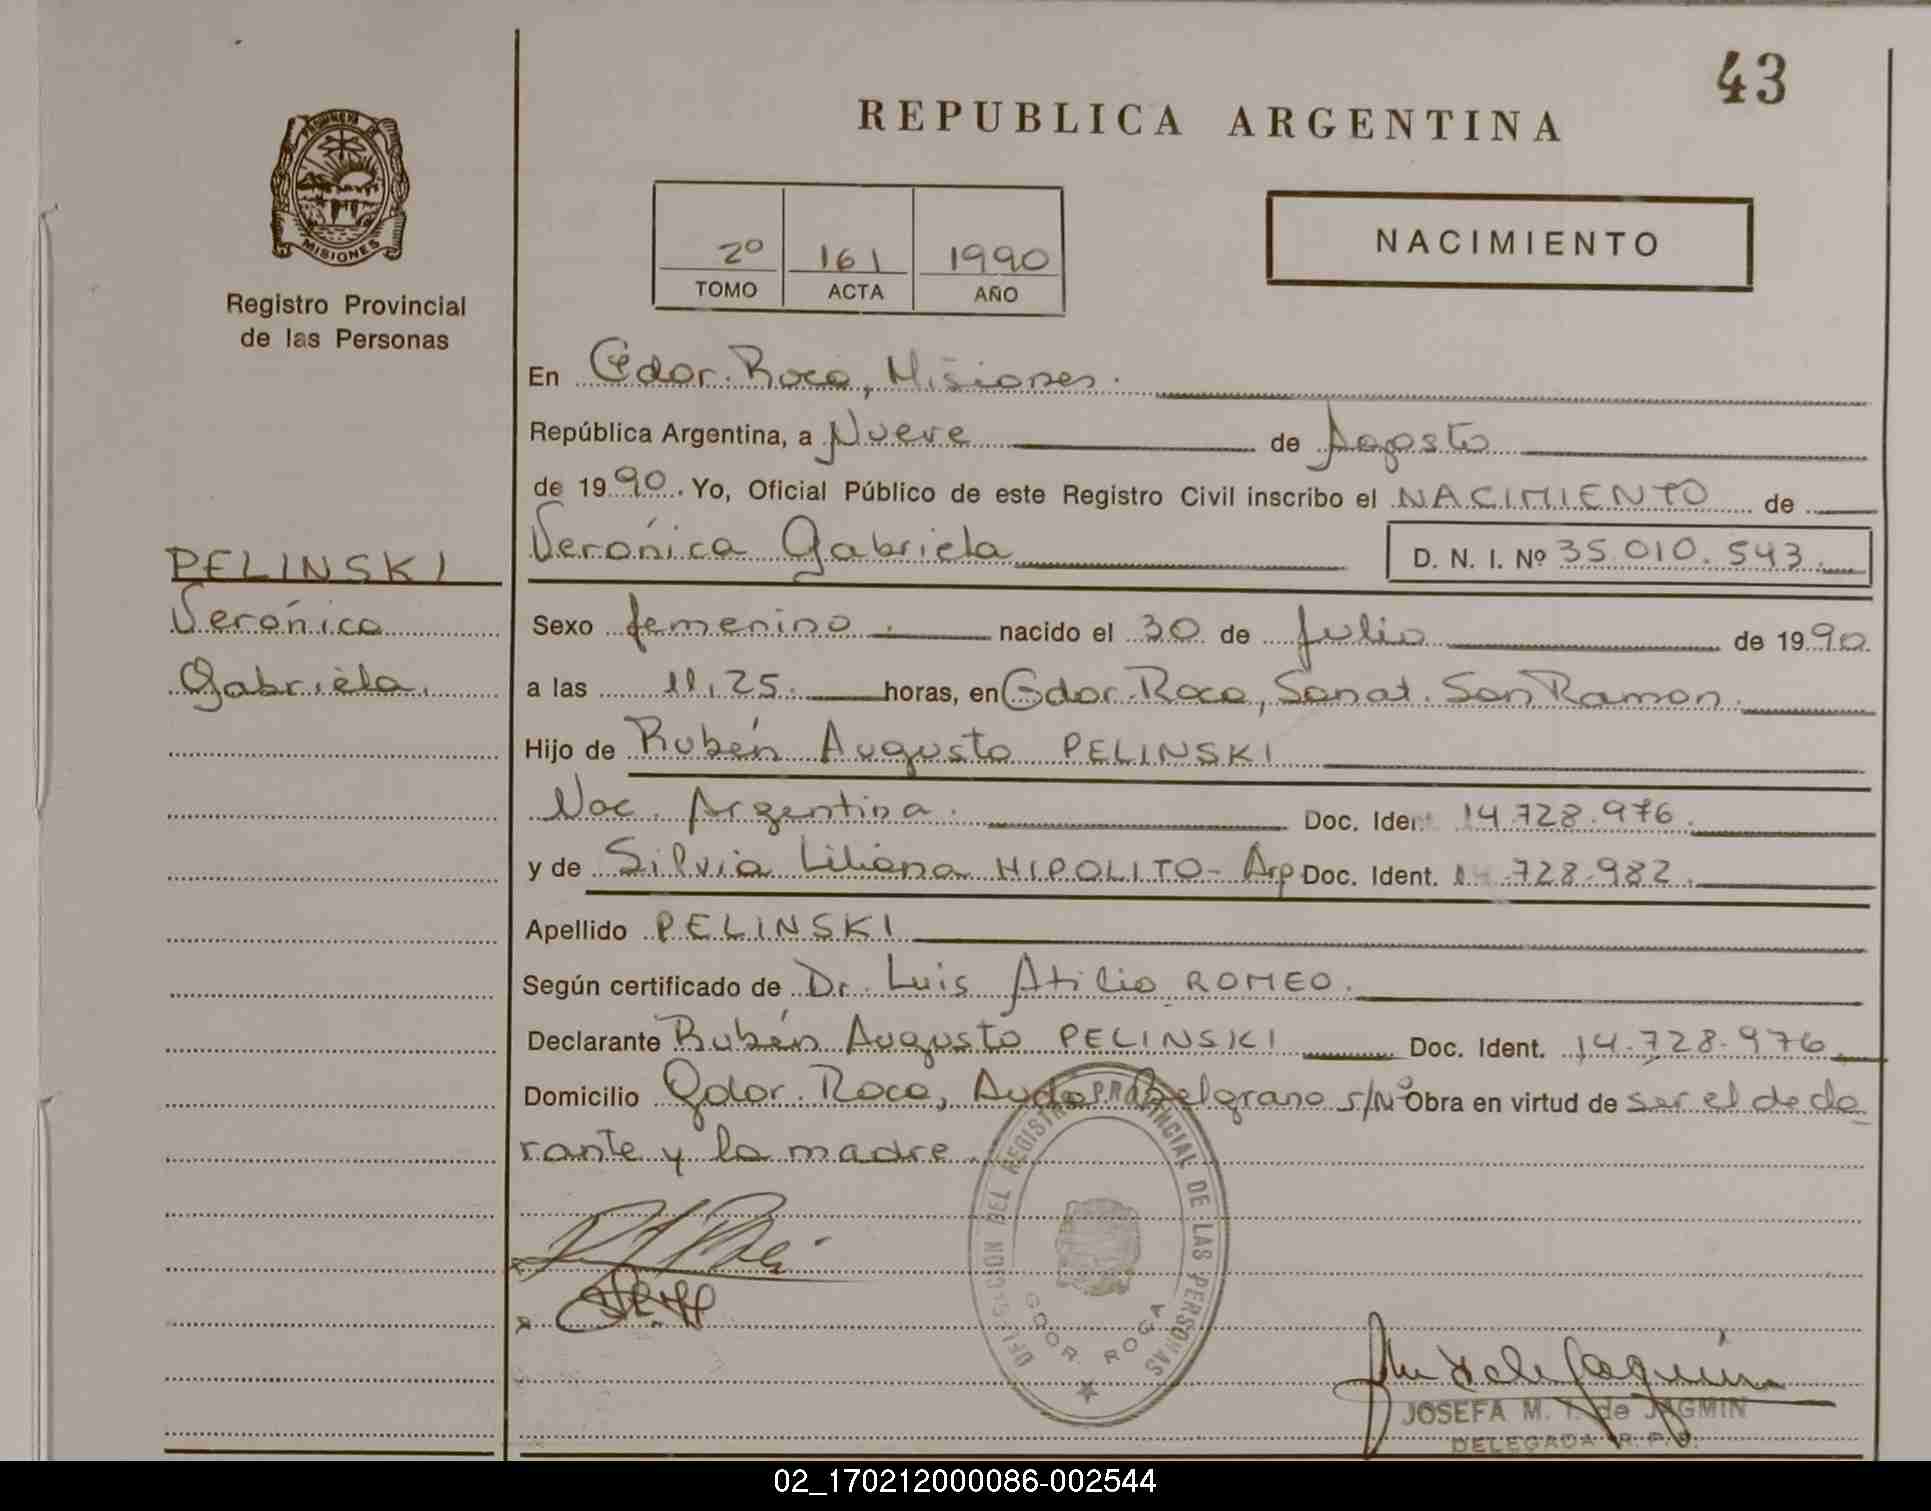 43
REPUBLICA ARGENTINA
PROVINCIA DE
MISIONES
Registro Provincial
de las Personas
2º 161 1990
TOMO ACTA AÑO
NACIMIENTO
En Gdor. Roca, Misiones.
República Argentina, a Nueve de Agosto
de 1990. Yo, Oficial Público de este Registro Civil inscribo el NACIMIENTO de
Verónica Gabriela D. N. I. Nº 35.010.543.
PELINSKI
Verónica
Gabriela.
Sexo femenino. nacido el 30 de Julio de 1990.
a las 11,25. horas, en Gdor. Roca, Sanat. San Ramon.
Hijo de Rubén Augusto PELINSKI
Nac. Argentina. Doc. Iden 14.728.976.
y de Silvia Liliana HIPOLITO- Arg Doc. Ident. 14.728.982.
Apellido PELINSKI
Según certificado de Dr. Luis Atilio ROMEO.
Declarante Rubén Augusto PELINSKI Doc. Ident. 14.728.976
Domicilio Gdor. Roca, Avda. Belgrano s/Nº Obra en virtud de ser el decla
rante y la madre.
DEL REGISTRO PROVINCIAL DE LAS PERSONAS
GDOR. ROCA
JOSEFA M. T. de JAGMIN
DELEGADA R. P. P.
02_170212000086-002544